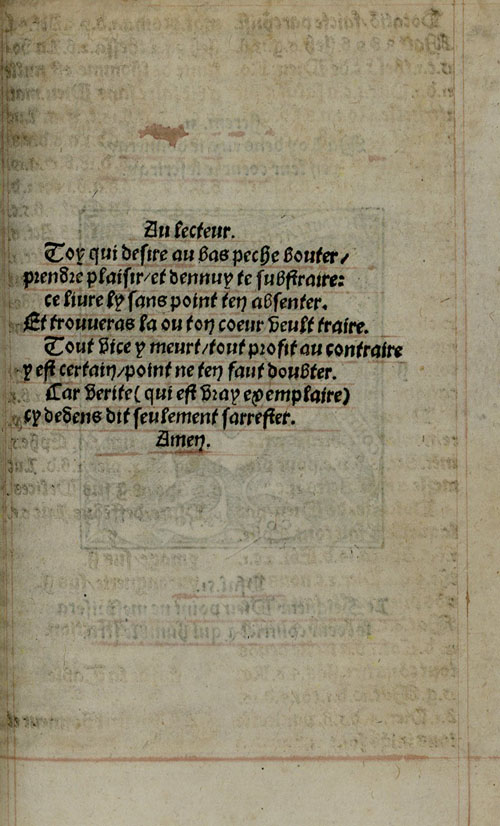 Au lecteur.
Toy qui desire au bas peche bouter/
prendre plaisir/et dennuy te substraire:
ce livre ly sans point ten absenter.
Et trouveras la ou ton coeur veult traire.
Tout vice y meurt/tout profit au contraire
y est certain/point ne ten faut doubter.
Car verite (qui est vray exemplaire)
cy dedens dit seulement sarrester.
Amen.